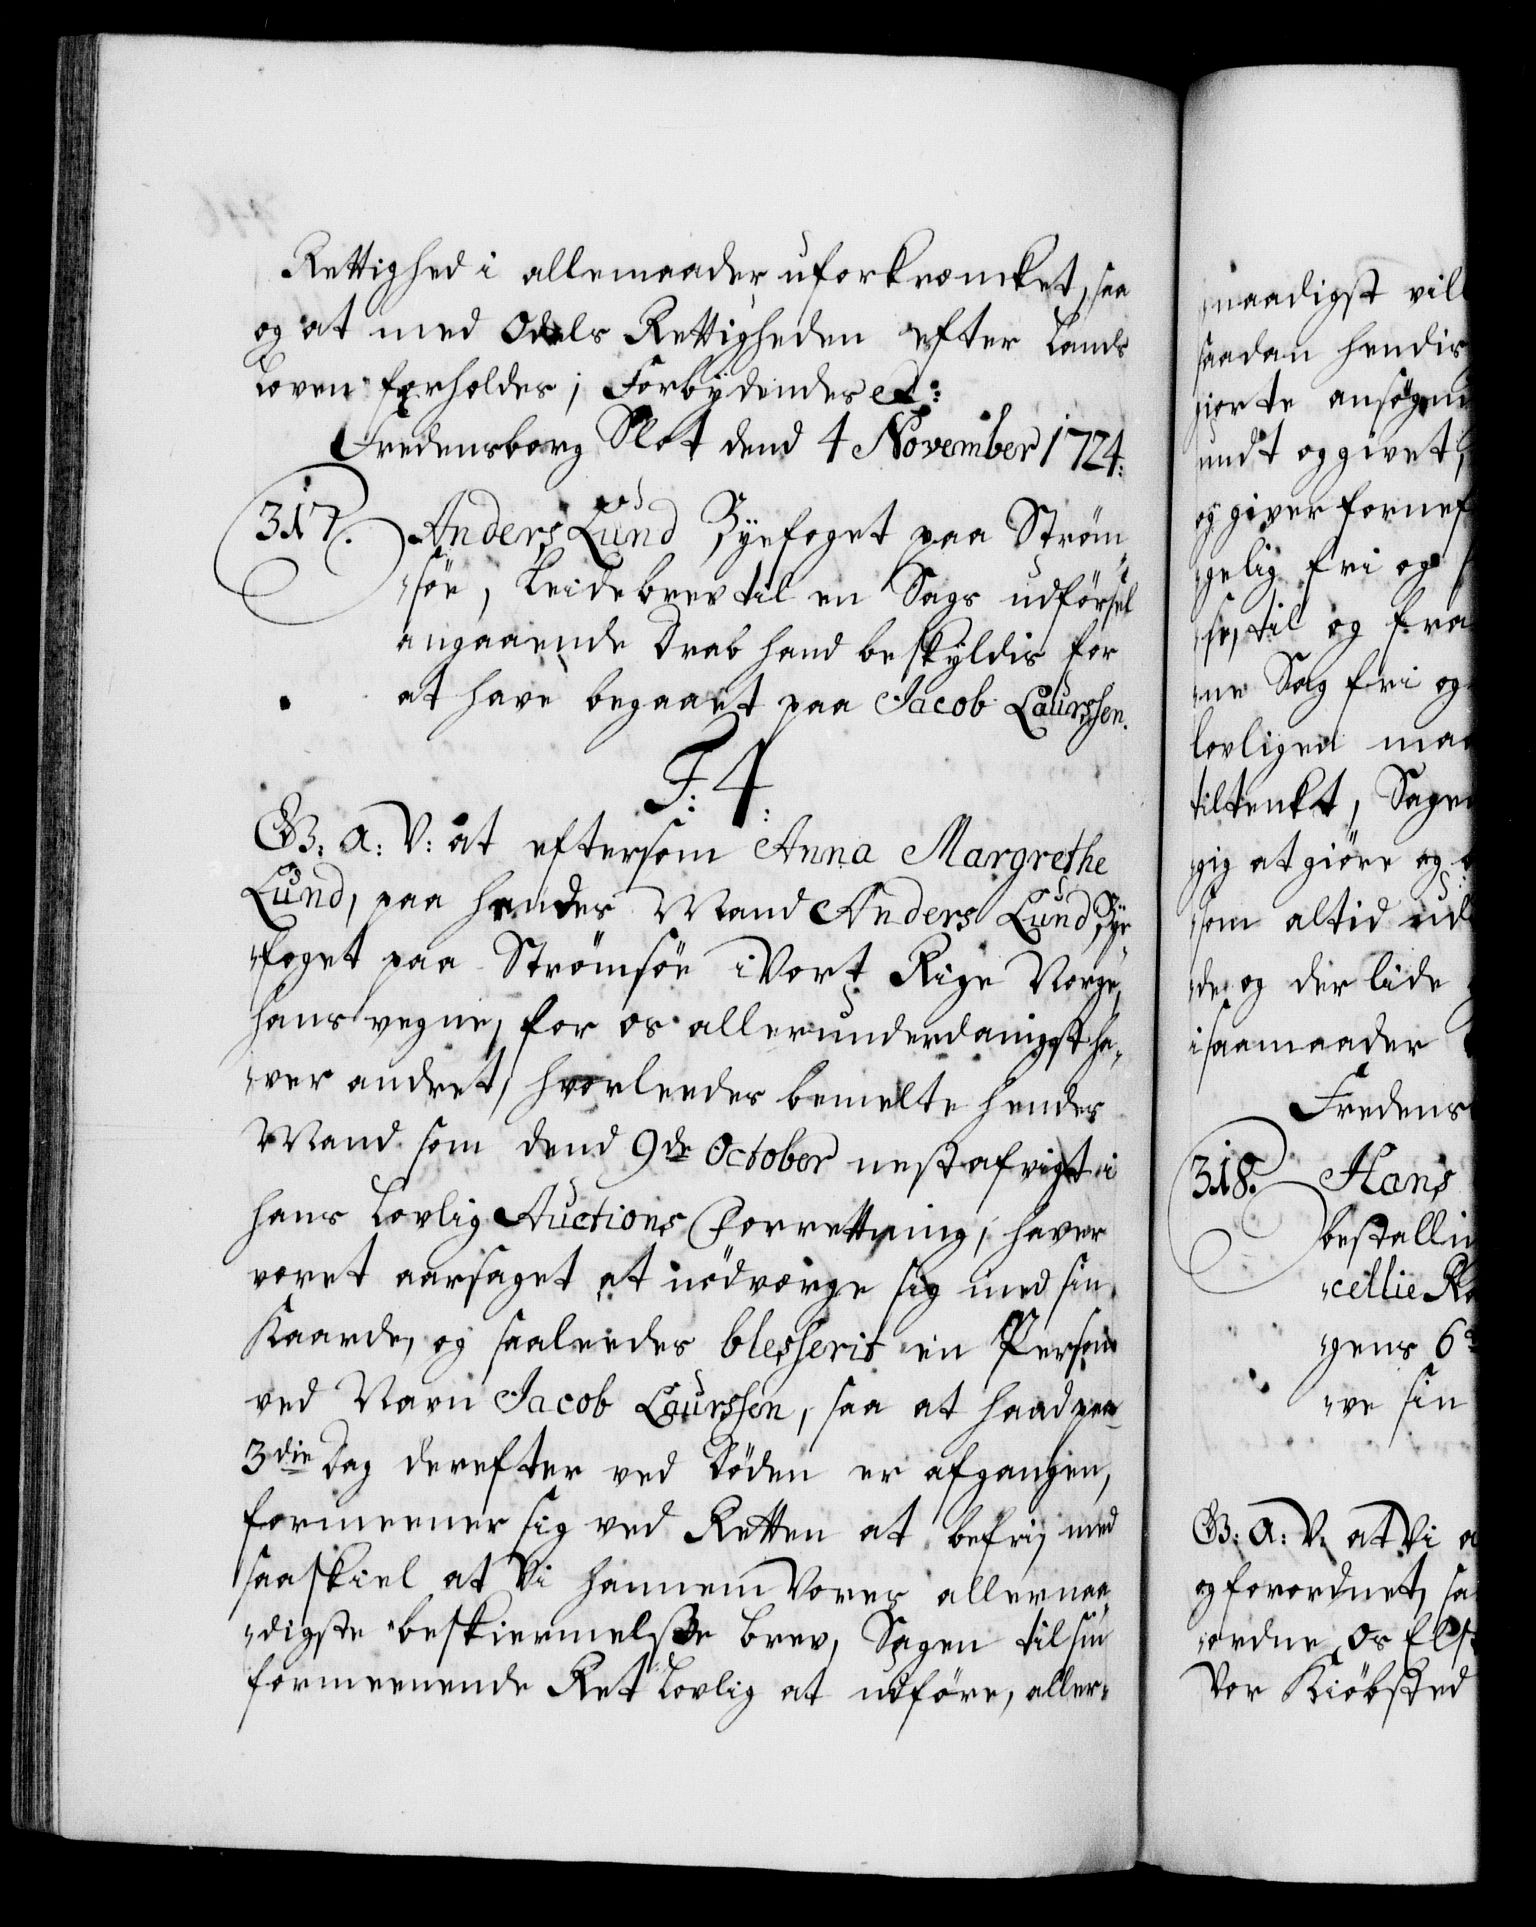 Rettighed i allemaader uforkrencket, saa
og at med Odels Rettigheden efter Lands
Loven forholdes; Forbydendes etc:
Fredensborg Slot dend 4 November 1724:
317. Anders Lund Byefoget paa Ström¬
¬söe, Leidebrev til en Sags udförsel
angaaende Drab hand beskyldis for
at have begaaet paa Jacob Laurssen.
F: 4.
G: A: V: at eftersom Anna Margrethe
Lund, paa hendes Mand Anders Lund Bye¬
¬foget paa Strömsöe i Vort Rige Norge,
hans vegne, for os allerunderdanigst ha¬
¬ver andret, hvorleedes bemelte hendes
Mand som dend 9de October nestafvigt i
hans Lovlig Auctions Forrettning, haver
været aarsaget at nödværge sig med sin
Kaarde, og saaleedes blesserit en Person
ved Navn Jacob Laurssen, saa at hand paa
3die Dag derefter ved Döden er afgangen,
formeener sig ved Retten at befrij med
saa skiel at Vi hannem Vores allernaa¬
¬digste beskiermelsse brev, Sagen til sin
formeenende Ret Lovlig at udföre, aller¬
¬naadigst vil
saadan hendis
giorte ansögn
undt og givet,
og giver fornef
¬gelig fri og
¬se, til og fra
¬ne Sag fri og
lovligen maa
tiltenkt, Sagen
¬gig at giöre og
som altid ud
¬de og der lide
i saamaader
Fredens
318. Hans
bestallin
¬cellie Ra
¬gens 6
¬ve sin
G: A: V: at Vi a
og forordnet, sa
¬ordne Os Elsk
Vor Kiöbsted